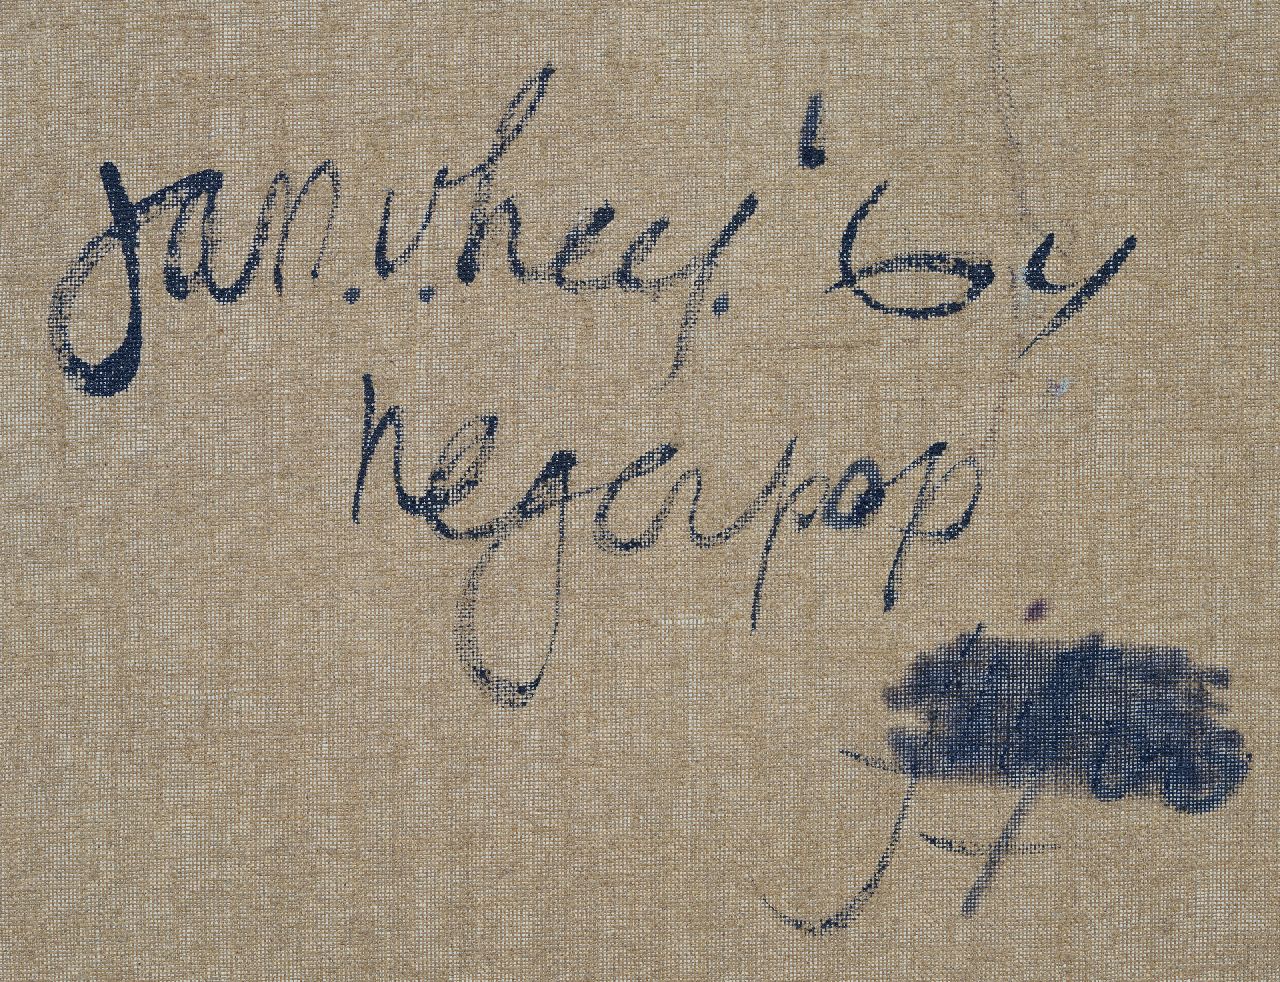 jan.v.heel. '64
negerpop